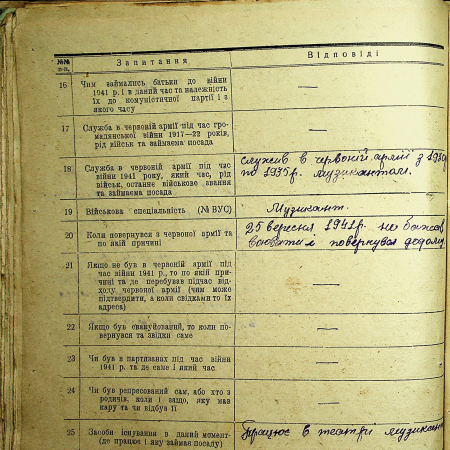 №№
п-п.
Запитання
Відповіді
16 Чим займались батьки до війни
1941 р. і в даний час та належність
їх до комуністичної партії і з
якого часу
—
17 Служба в червоній армії під час гро-
мадянської війни 1917—22 років,
рід військ та займаєма посада
—
18 Служба в червоній армії під час
війни 1941 року, який час, рід
військ, останнє військове звання
та займаєма посада
служив в червоній армії з
по 1935 р. музикантом.
19 Військова спеціальність (№ ВУС)
Музикант.
20 Коли повернувся з червоної армії та
по якій причині
25 вересня 1941 р. не бажав
воювати й повернувся додому.
21 Якщо не був в червоній армії під
час війни 1941 р., то по якій при-
чині та де перебував підчас від-
ходу червоної армії (чим може
підтвердити, а коли свідками то їх
адреса)
—
22 Якщо був евакуйований, то коли по-
вернувся та звідки саме
—
23 Чи був в партизанах під час війни
1941 р. та де саме і який час
—
24 Чи був репресований сам, або хто з
родичів, коли і защо, яку мав
кару та чи відбув її
—
25 Засоби існування в даний момент-
(де працює і яку займає посаду)
Працює в театрі